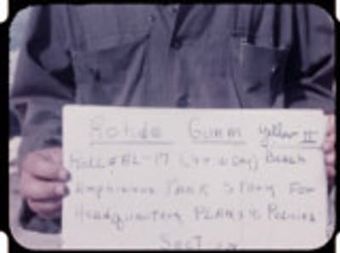 Rohde Gunm Yellow II
Roll # BL-17 Beach
Amphibious Tank Story For
Headquarters Plans & Policies
Section